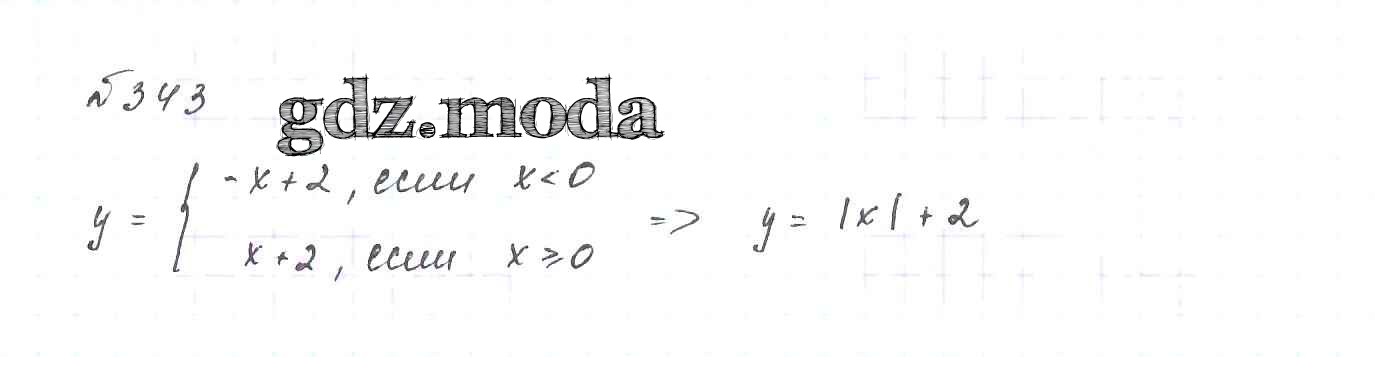 №343
gdz.moda
y = { -x+2, если x<0
x+2, если x≥0 => y = |x|+2